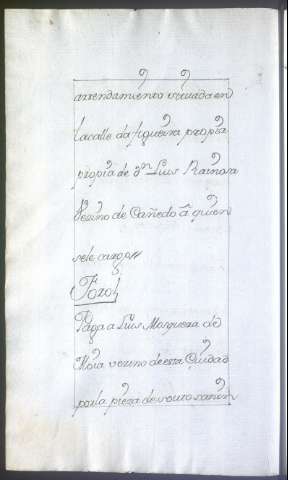 arrendamiento situada en
la calle da figueira propia
propia de Dn Luis Rainosa
Vezino de Cañedo â quien
se le cargo //
Foro
Paga a Luis Mosquera de
Noia vezino de esta Ciudad
por la pieza de souto